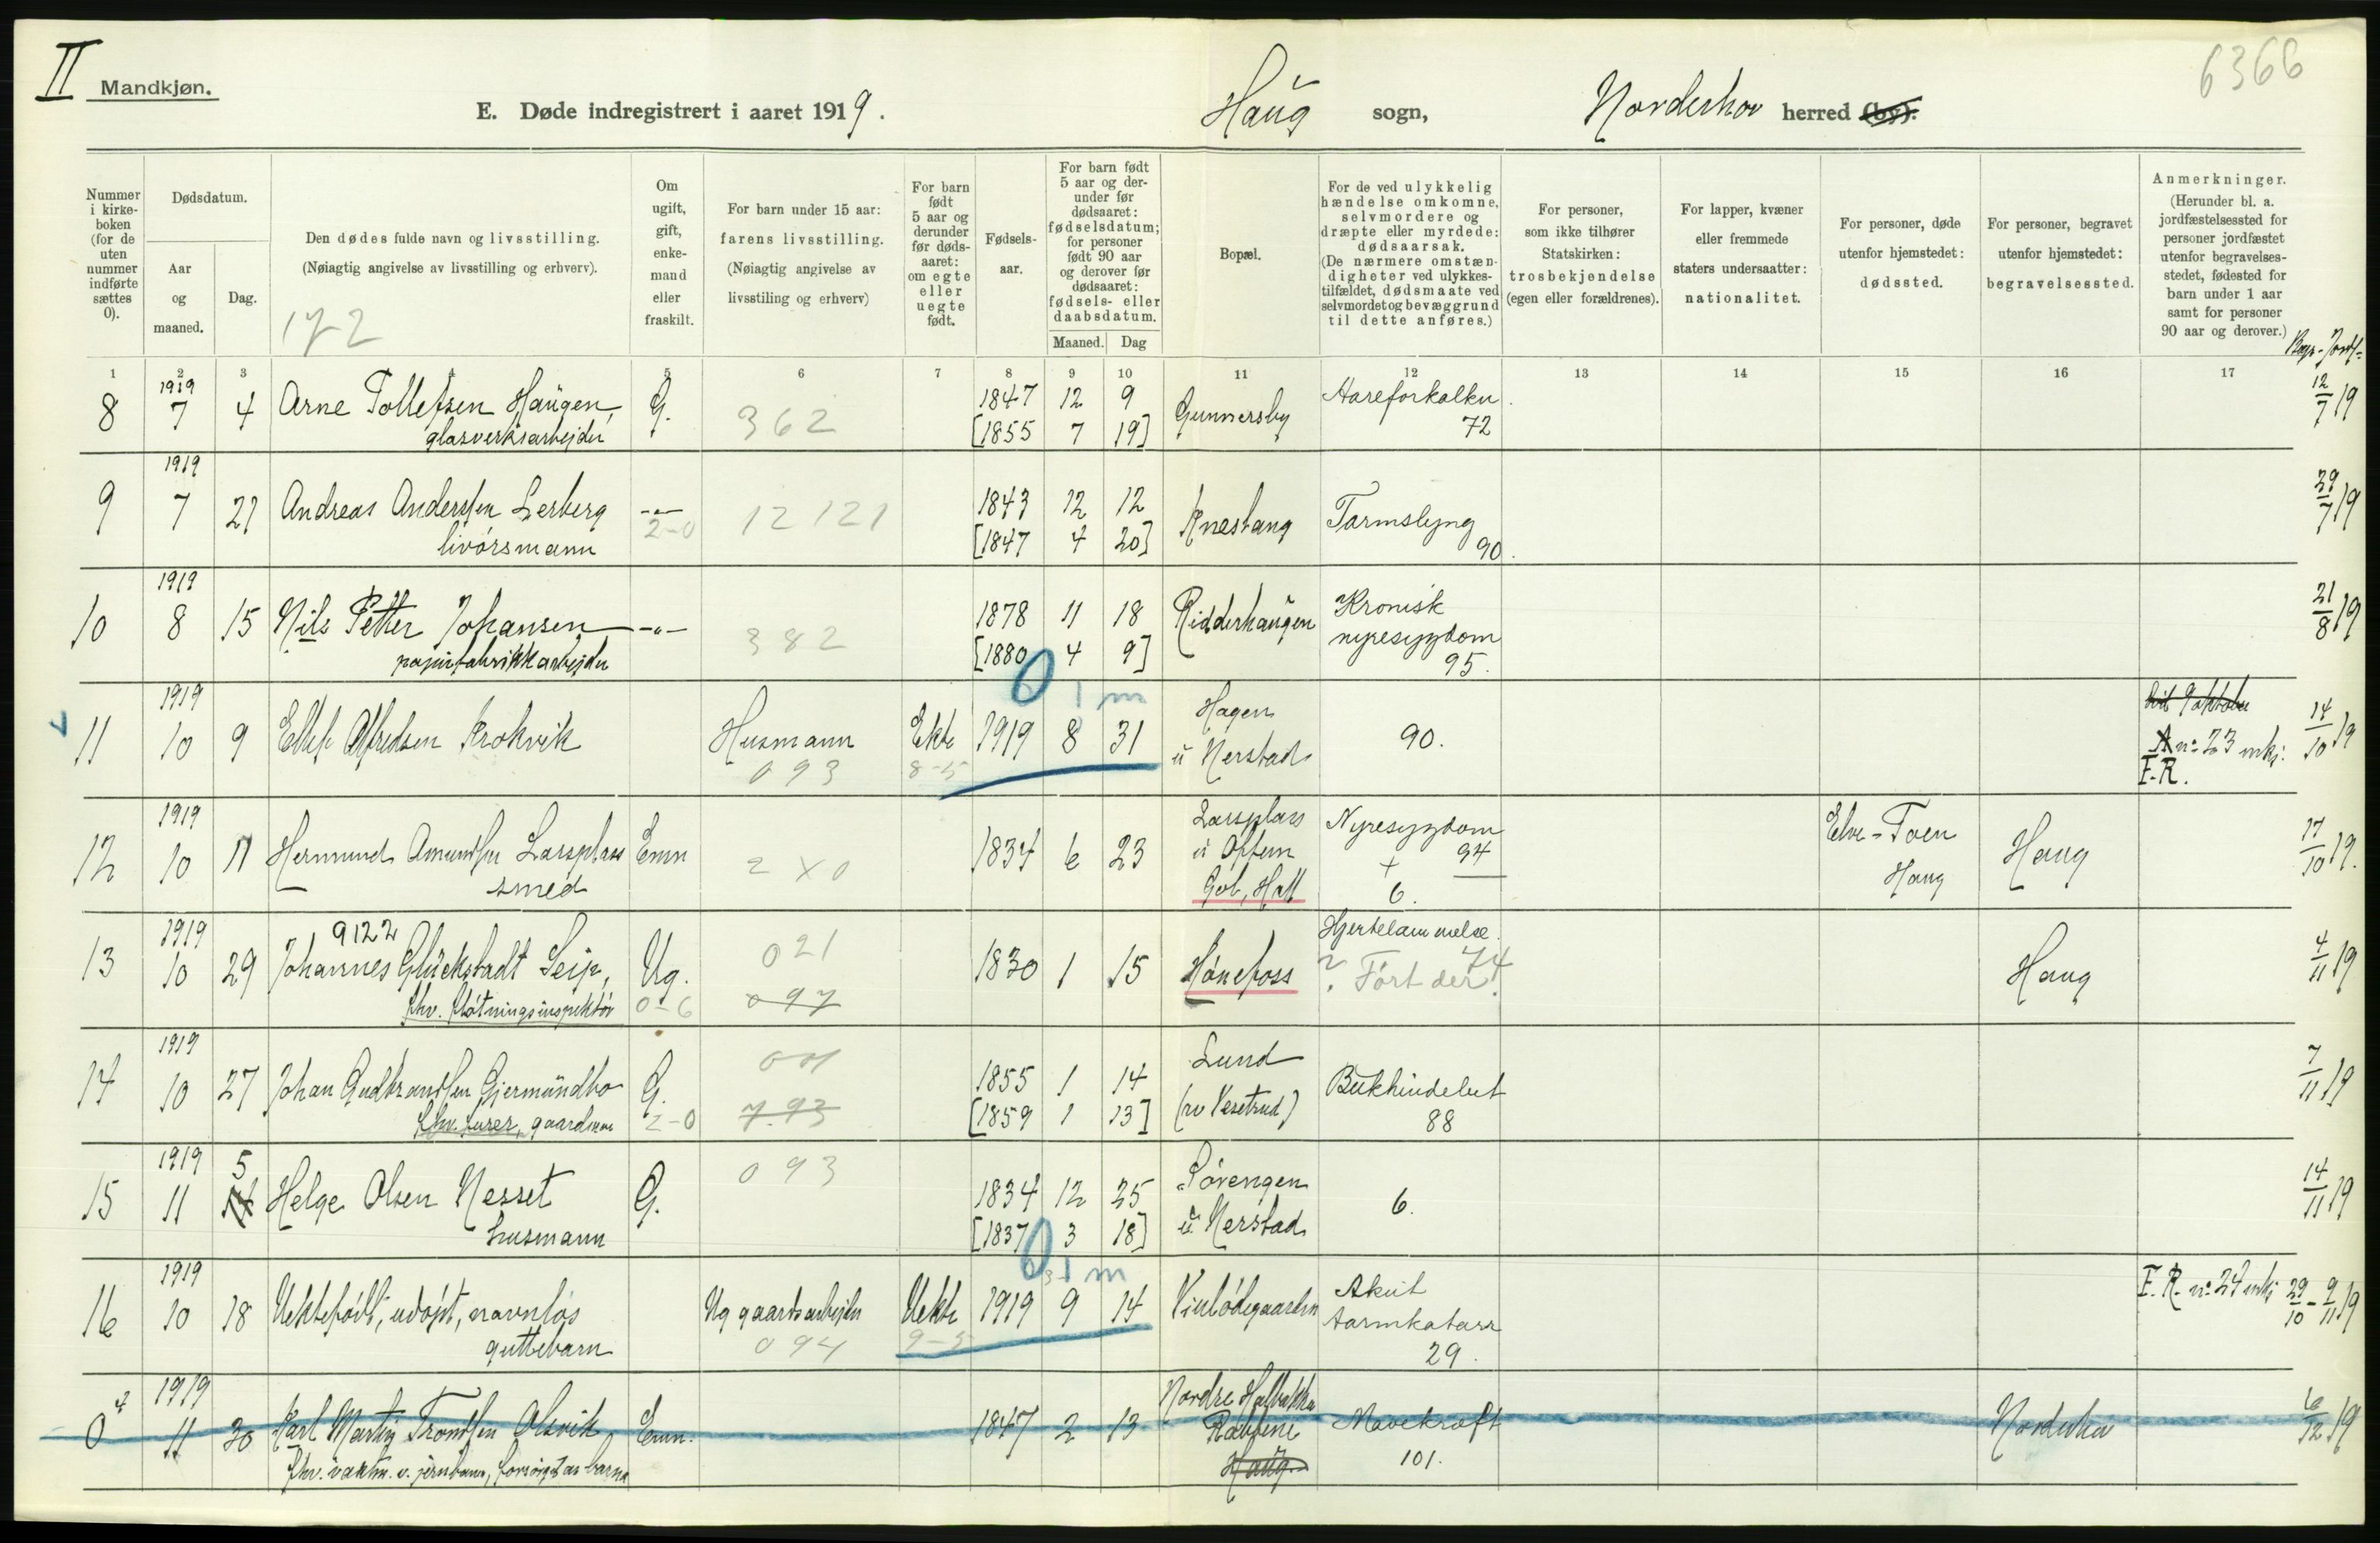 II
Mandkjøn.
6366
E. Døde indregistrert i aaret 1919.
Haug sogn,
Norderhov herred (by).
Nummer i kirkeboken (for de uten nummer indførte sættes 0).
Dødsdatum.
Aar og maaned.
Dag.
Den dødes fulde navn og livsstilling.
(Nøiagtig angivelse av livsstilling og erhverv).
172
Om ugift, gift, enkemand eller fraskilt.
For barn under 15 aar:
farens livsstilling.
(Nøiagtig angivelse av livsstiling og erhverv)
For barn født 5 aar og derunder før dødsaaret: om egte eller uegte født.
Fødselsaar.
For barn født 5 aar og derunder før dødsaaret: fødselsdatum; for personer født 90 aar og derover før dødsaaret: fødsels- eller daabsdatum.
Maaned. Dag
Bopæl.
For de ved ulykkelig hændelse omkomne, selvmordere og dræpte eller myrdede: dødsaarsak. (De nærmere omstændigheter ved ulykkestilfældet, dødsmaate ved selvmordet og bevæggrund til dette anføres.)
For personer, som ikke tilhører Statskirken: trosbekjendelse (egen eller forældrenes).
For lapper, kvæner eller fremmede staters undersaatter: nationalitet.
For personer, døde utenfor hjemstedet: dødssted.
For personer, begravet utenfor hjemstedet: begravelsessted.
Anmerkninger.
(Herunder bl. a. jordfæstelsessted for personer jordfæstet utenfor begravelsesstedet, fødested for barn under 1 aar samt for personer 90 aar og derover.)
1 2 3 4 5 6 7 8 9 10 11 12 13 14 15 16 17
8 1919 7 4 Arne Tollefsen Haugen, G. 362 1847 12 9 Gunnersby Aareforkalkn. 12/7 19
glasverksarbejder [1855 7 19] 72
9 1919 7 21 Andreas Andersen Lerberg -"- 12121 1843 12 12 Knestang Tarmslyng 29/7 19
livørsmann 2-0 [1847 4 20] 90.
10 1919 8 15 Nils Petter Johansen -"- 382 1878 11 18 Ridderhaugen Kronisk nyresygdom 21/8 19
papirfabrikkarbejder [1880 4 9] 95.
0 1 m
11 1919 10 9 Ellef Alfredsen Krokvik Husmann Ekte 1919 8 31 Hagen u Nerstad 90. 14/10 19
093 8-5 A nº 23 mkj. F.R.
12 1919 10 11 Hermund Amundsen Larsplass Enm 2X0 1834 6 23 Larsplass u Oppem Nyresygdom 94 Elve-Toen Haug Haug 17/10 19.
smed Gol, Hall + 6.
13 1919 10 29 9122 Johannes Glückstadt Seip, Ug. 021 1830 1 15 Hønefoss Hjertelammelse. 74 Haug 4/11 19
fhv. fløtningsinspektør 0-6 097 ? Ført der?
14 1919 10 27 Johan Gudbrandsen Gjermundbo G. 001 1855 1 14 Lund Bukhindebet 7/11 19
fhv. furer, gaardmann 2-0 793 [1859 1 13] (nv Vesetrud) 88
15 1919 11 5 Helge Olsen Nesset G. 093 1834 12 25 Rørengen 6. 14/11 19
husmann [1837 3 18] u. Nerstad
0 1 m
16 1919 10 18 Uektefødt, udøpt, navnløs Ug gaardsarbejder Uekte 1919 9 14 Akut tarmkatarr F.R. nº 24 mkj 29/10 - 9/11 19
guttebarn 094 9-5 29.
0 1919 11 30 Karl Martin Trondsen Olsvik Enm. 1847 2 13 Nordre Mavekræft Norderhov 6/12 19
fhv. vaktm. v. jernbanen, forsørget av barna Haug 101.